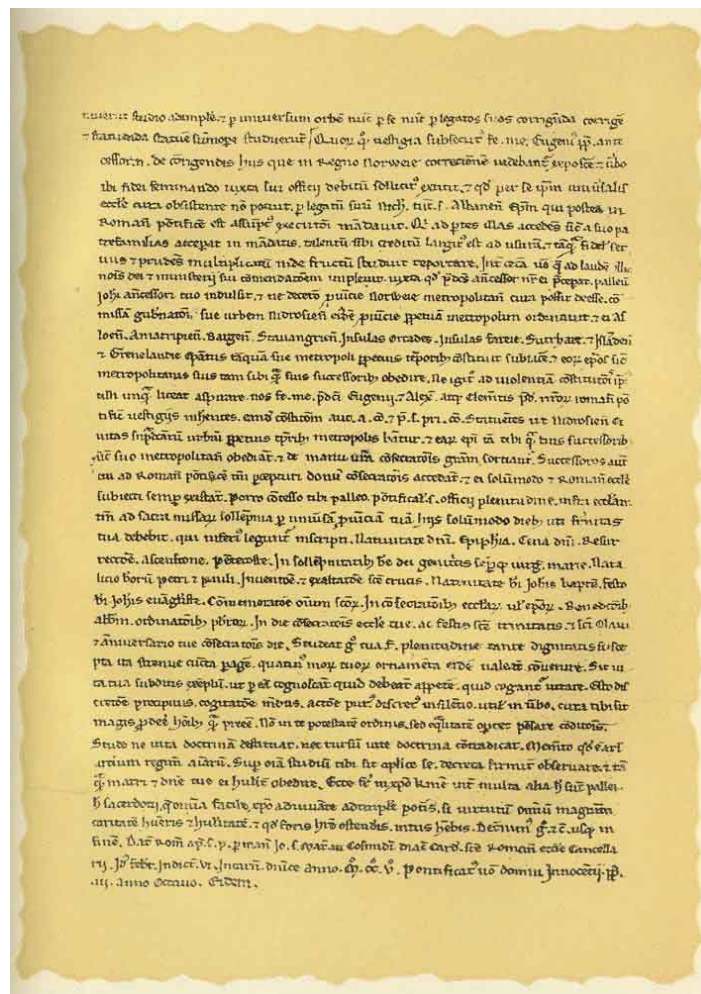 studio adimplē. ⁊ p universum orbē nūc p se nūc p legatos suos corrigēda corrigē
⁊ statuenda statuē sūmope studuerūt. Quoꝝ q̄ vestigia subsecut᾿ fe. me. Eugeni᾿ pp̄. ante
cessor n̄. de corrigendis hiis que in Regno Norweie correctionē videbant᾿ exposce ⁊ ūbo
ibi fidei seminando iuxta sui officii debitū sollicit᾿ extitit. ⁊ qd̄ per se ip̄m universalis
ecclē cura obsistente nō potuit. p legatū suū Nich. tūc. s. Albanen̄ Ep̄m qui postea in
Romanū pōtificē est assūpt᾿ executōi mādavit. Qi ad ptes illas accedēs sic̄ a suo pa
trefamilias accepat in mādatis. talentū sibi creditū largit᾿ est ad usurā. ⁊ tāq̄ fidel᾿ ser
vus ⁊ prudēs multiplicatū inde fructū studuit reportare. Int᾿ cet̄a vo᾿ q̄ ad laudē illi᾿
nōis dei ⁊ ministerii sui comendatōem implevit. iuxta qd̄ p̄dcs ancessor nr̄ ei p̄cepat. palleū
Johi ancessori tuo indulsit. ⁊ ne decet̄o pvincie Norweie metropolitan̄ cura possit deesse. cō
missā gubn̄atōi sue urbem Nidrosien̄ ei᾿dē pvincie ppetuā metropolim ordinavit. ⁊ ei As
loen̄. Amatripien̄. Bargen̄. Stavangrien̄. Insulas Orcades. Insulas fareie. Sutrhaie. ⁊ Islāden̄
⁊ Grenelandie epātus tāquā sue metropoli ppetuis tēporib cōstituit subiacē. ⁊ eoꝝ ep̄os sic̄
metropolitanis suis tam sibi q̄ suis successorib obedire. Ne igit᾿ ad violentiā cōstitutōi᾿ ip̄i᾿
ulli unq̄ liceat aspirare. nos fe. me. p̄dci Eugenii ⁊ Alex̄. atq Clemētis p̄d. nr̄oꝝ romanꝝ pō
tific̄ vestigiis inherētes. eand̄ cōstitōm auc. a. cō. ⁊ p̄. s. pri. cō. Statuētes ut Nidrosien̄ ci
vitas sup̄dctarū urbiū ppetuis tp̄rib metropolis habeat᾿. ⁊ eaꝝ ep̄i tā tibi q̄ tuis successorib
sic̄ suo metropolitan̄ obediāt. ⁊ de manu vr̄a cōsecratōis grām sortiant᾿. Successores aut̄
tui ad Romanū pōtificē tm̄ pcepturi donū cōsecratōis accedāt. ⁊ ei solūmodo ⁊ Roman̄ ecclē
subiecti semp existāt. Porro cōcesso tibi palleo. pōtificał. s. officii plenitudine. infra ecclām
tm̄ ad sacra missaꝝ sollēpnia p univsā pvinciā tuā hiis solūmodo dieb uti fr̄nitas
tua debebit. qui inferi᾿ legunt᾿ inscripti. Nativitate dn̄i. Epiphia. Cena dn̄i. Resur
rectōe. ascensione. pentecoste. In sollēpnitatib be dei genitricis sēpq virḡ. marie. Nata
licio beatoꝝ petri ⁊ pauli. Inventōe. ⁊ exaltatōe scē crucis. Nativitate bi Johis bapte. festo
bi Johis evāgliste. Cōmemoratōe oīum scōꝝ. In cōsecratōib ecclaꝝ. ul᾿ ep̄oꝝ. Benedictōib
abbm̄. ordinatōib p̄broꝝ. In die cōsecratōis ecclē tue. ac festis scē trinitatis. ⁊ sci Olavi
⁊ anniversario tue cōsecratōis die. Studeat g᾿ tua f. plenitudine tante dignitatis susce
pta ita strenue cūcta pagē. quatin᾿ moꝝ tuoꝝ ornamēta eidē valeāt cōvenire. Sit vi
ta tua subditis exēplū. ut p eā cognoscāt quid debeāt appetē. quid cogant᾿ vitare. Esto dis
cretōe precipuus. cogitatōe mūdus. actōe pur᾿. discret᾿ in silētio. util᾿ in ūbo. cura tibi sit
magis pdeē hoīb q̄ preeē. Nō in te potestatē ordinis. sed eq̄litatē oportet pēsare cōditōis.
Stude ne vita doctrinā destituat. nec rursū vite doctrina cōtradicat. Memēto qd̄ ē ars
artium regim̄ aīaꝝ. Sup oīa studiū tibi sit aplice se. decreta firmit᾿ observare. ⁊ tā
q̄ matri ⁊ dn̄e tue ei hūilit᾿ obedire. Ecce fr̄ in xpo kme int᾿ multa alia h sūt pallei.
h sacerdotii. q̄ om̄ia facile. xpo adiuvāte adimplē pot̄is. si virtutū om̄iū magistrā
caritatē hueris ⁊ hūilitatē. ⁊ qd̄ foris hr̄e ostendis. intus hebis. Dec̄nim᾿ g᾿. ⁊c̄. usq in
finē. Dat᾿ Rom̄ ap. s. p. p man̄ Jo. s. Mar̄ in Cosmidī diac̄ Card̄. scē Roman̄ ecclē Cancella
rii. Jd᾿ febr᾿. Indict̄. VI. Incarn̄. dn̄ice anno. M̊. CC̊. V̊. Pontificat᾿ vo᾿ domini Innocētii. pp̄.
iii. Anno Octavo. Eidem.